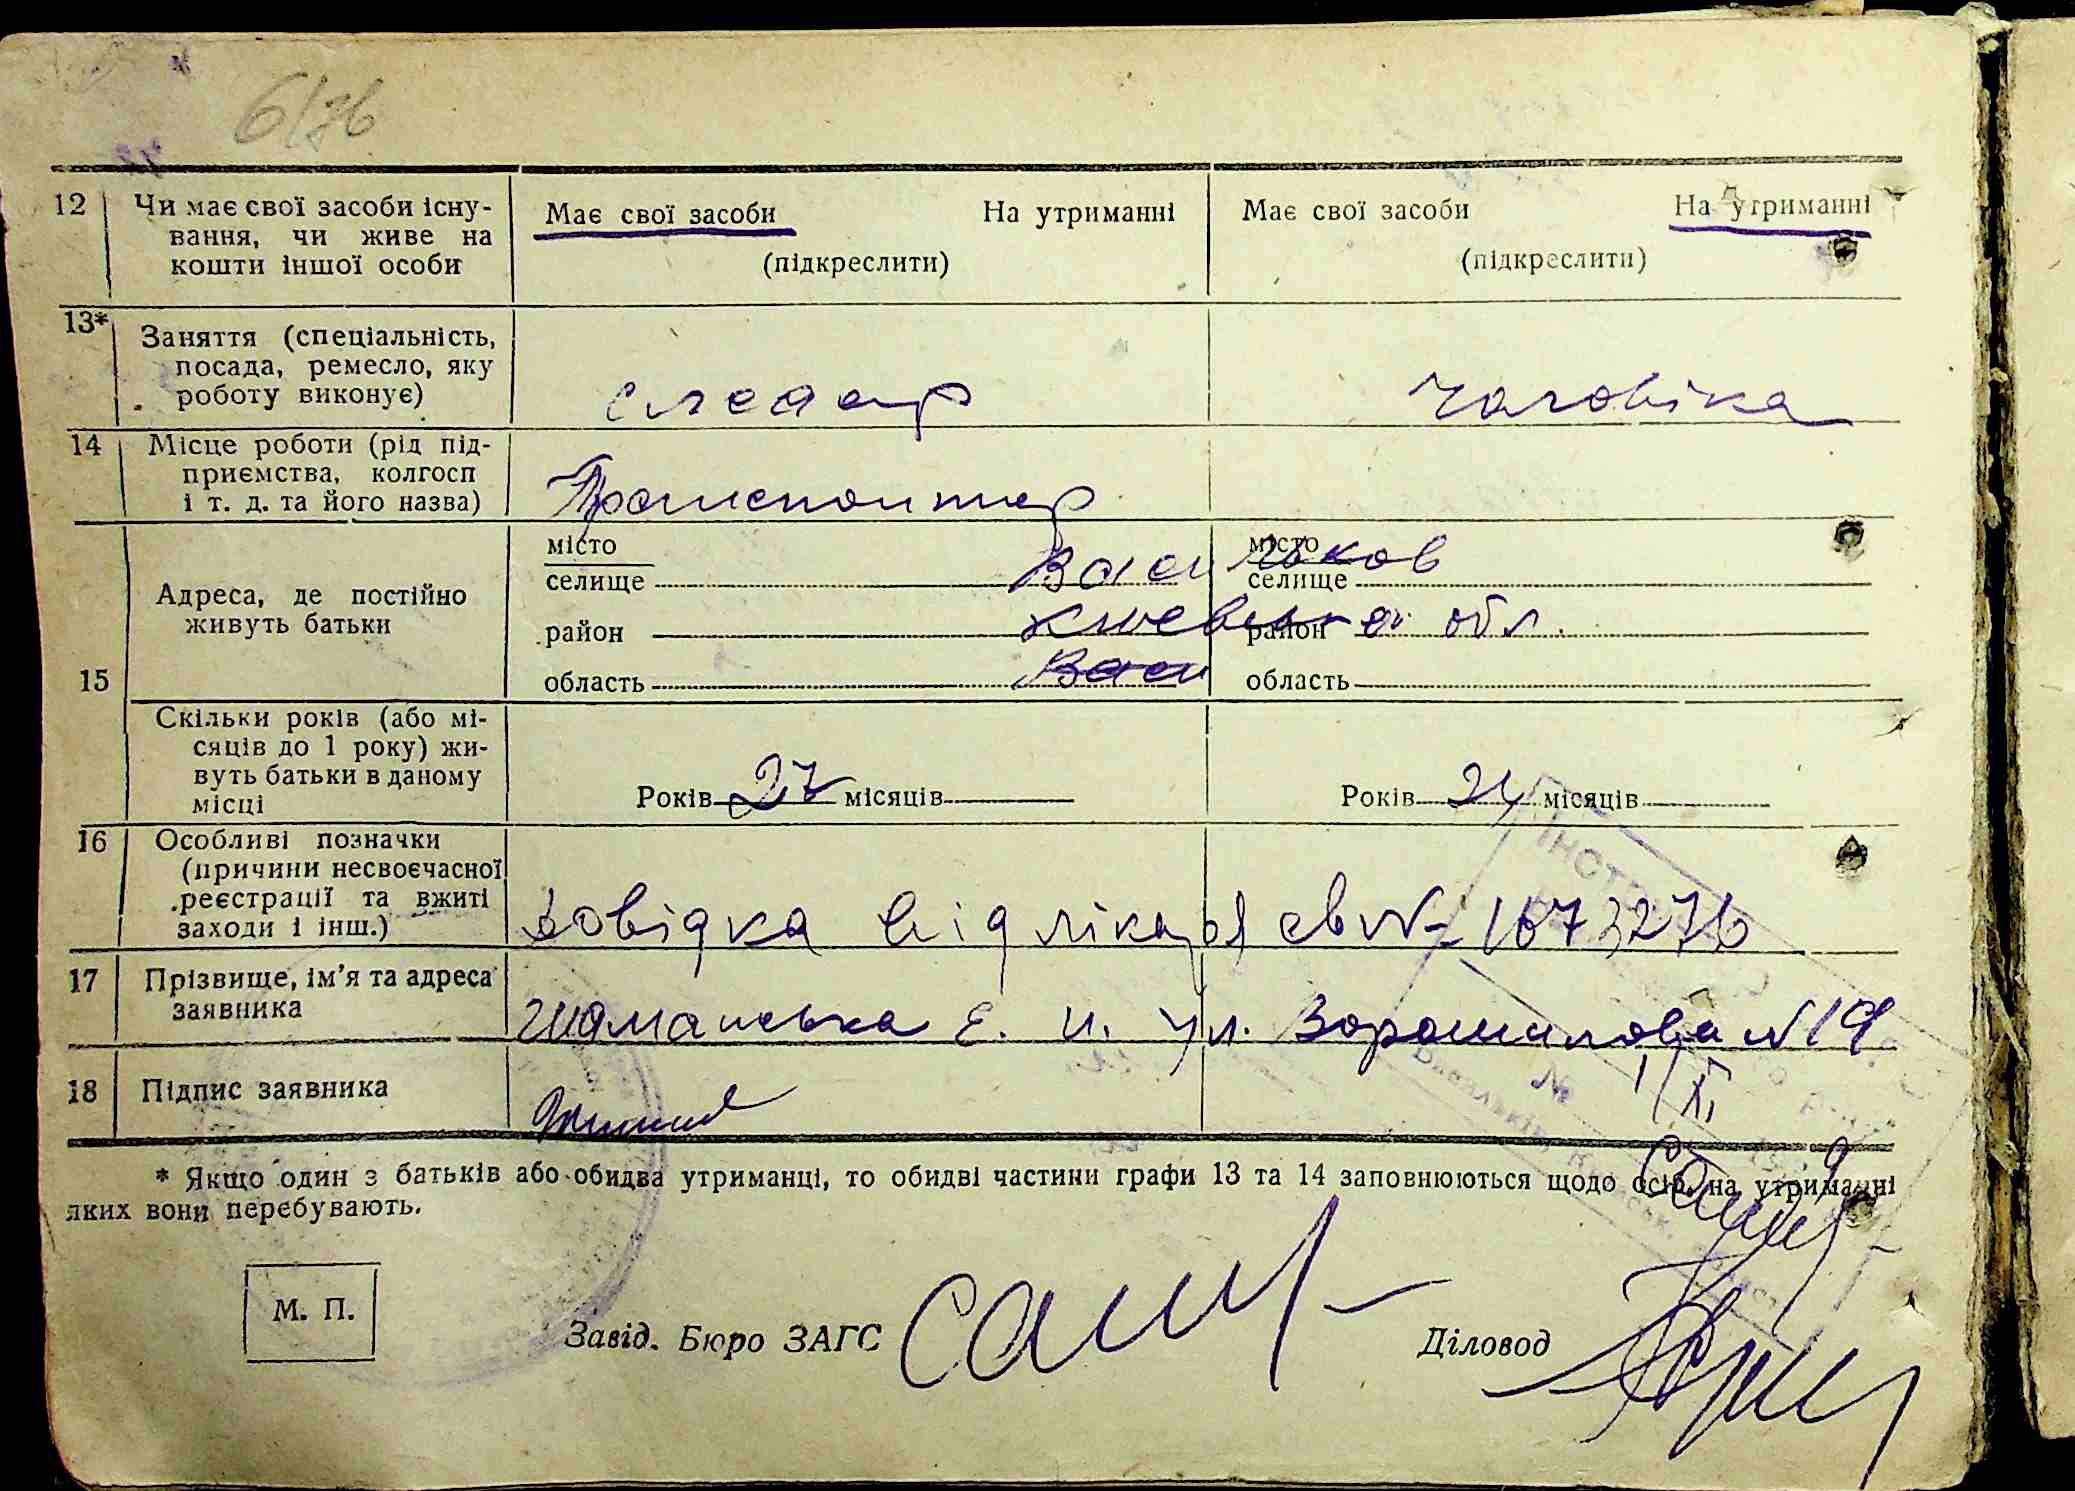 6/76
12 Чи має свої засоби існу-
вання, чи живе на
кошти іншої особи
Має свої засоби На утриманні
(підкреслити)
Має свої засоби На утриманні
(підкреслити)
13* Заняття (спеціальність,
посада, ремесло, яку
роботу виконує)
слесар чоловіка
14 Місце роботи (рід під-
приємства, колгосп
і т. д. та його назва)
15 Адреса, де постійно
живуть батьки
місто місто
селище селище
Васильков
район район
Киевская обл.
область область
Васи
Скільки років (або мі-
сяців до 1 року) жи-
вуть батьки в даному
місці
Років 27 місяців Років 24 місяців
16 Особливі позначки
(причини несвоєчасної
реєстрації та вжиті
заходи і інш.)
довідка від лікаря св № 1673276
17 Прізвище, ім'я та адреса
заявника
Шаманська Е. И. ул. Ворошилова N 19
18 Підпис заявника
* Якщо один з батьків або обидва утриманці, то обидві частини графи 13 та 14 заповнюються щодо осіб, на утриманні
яких вони перебувають.
М. П.
Завід. Бюро ЗАГС Діловод